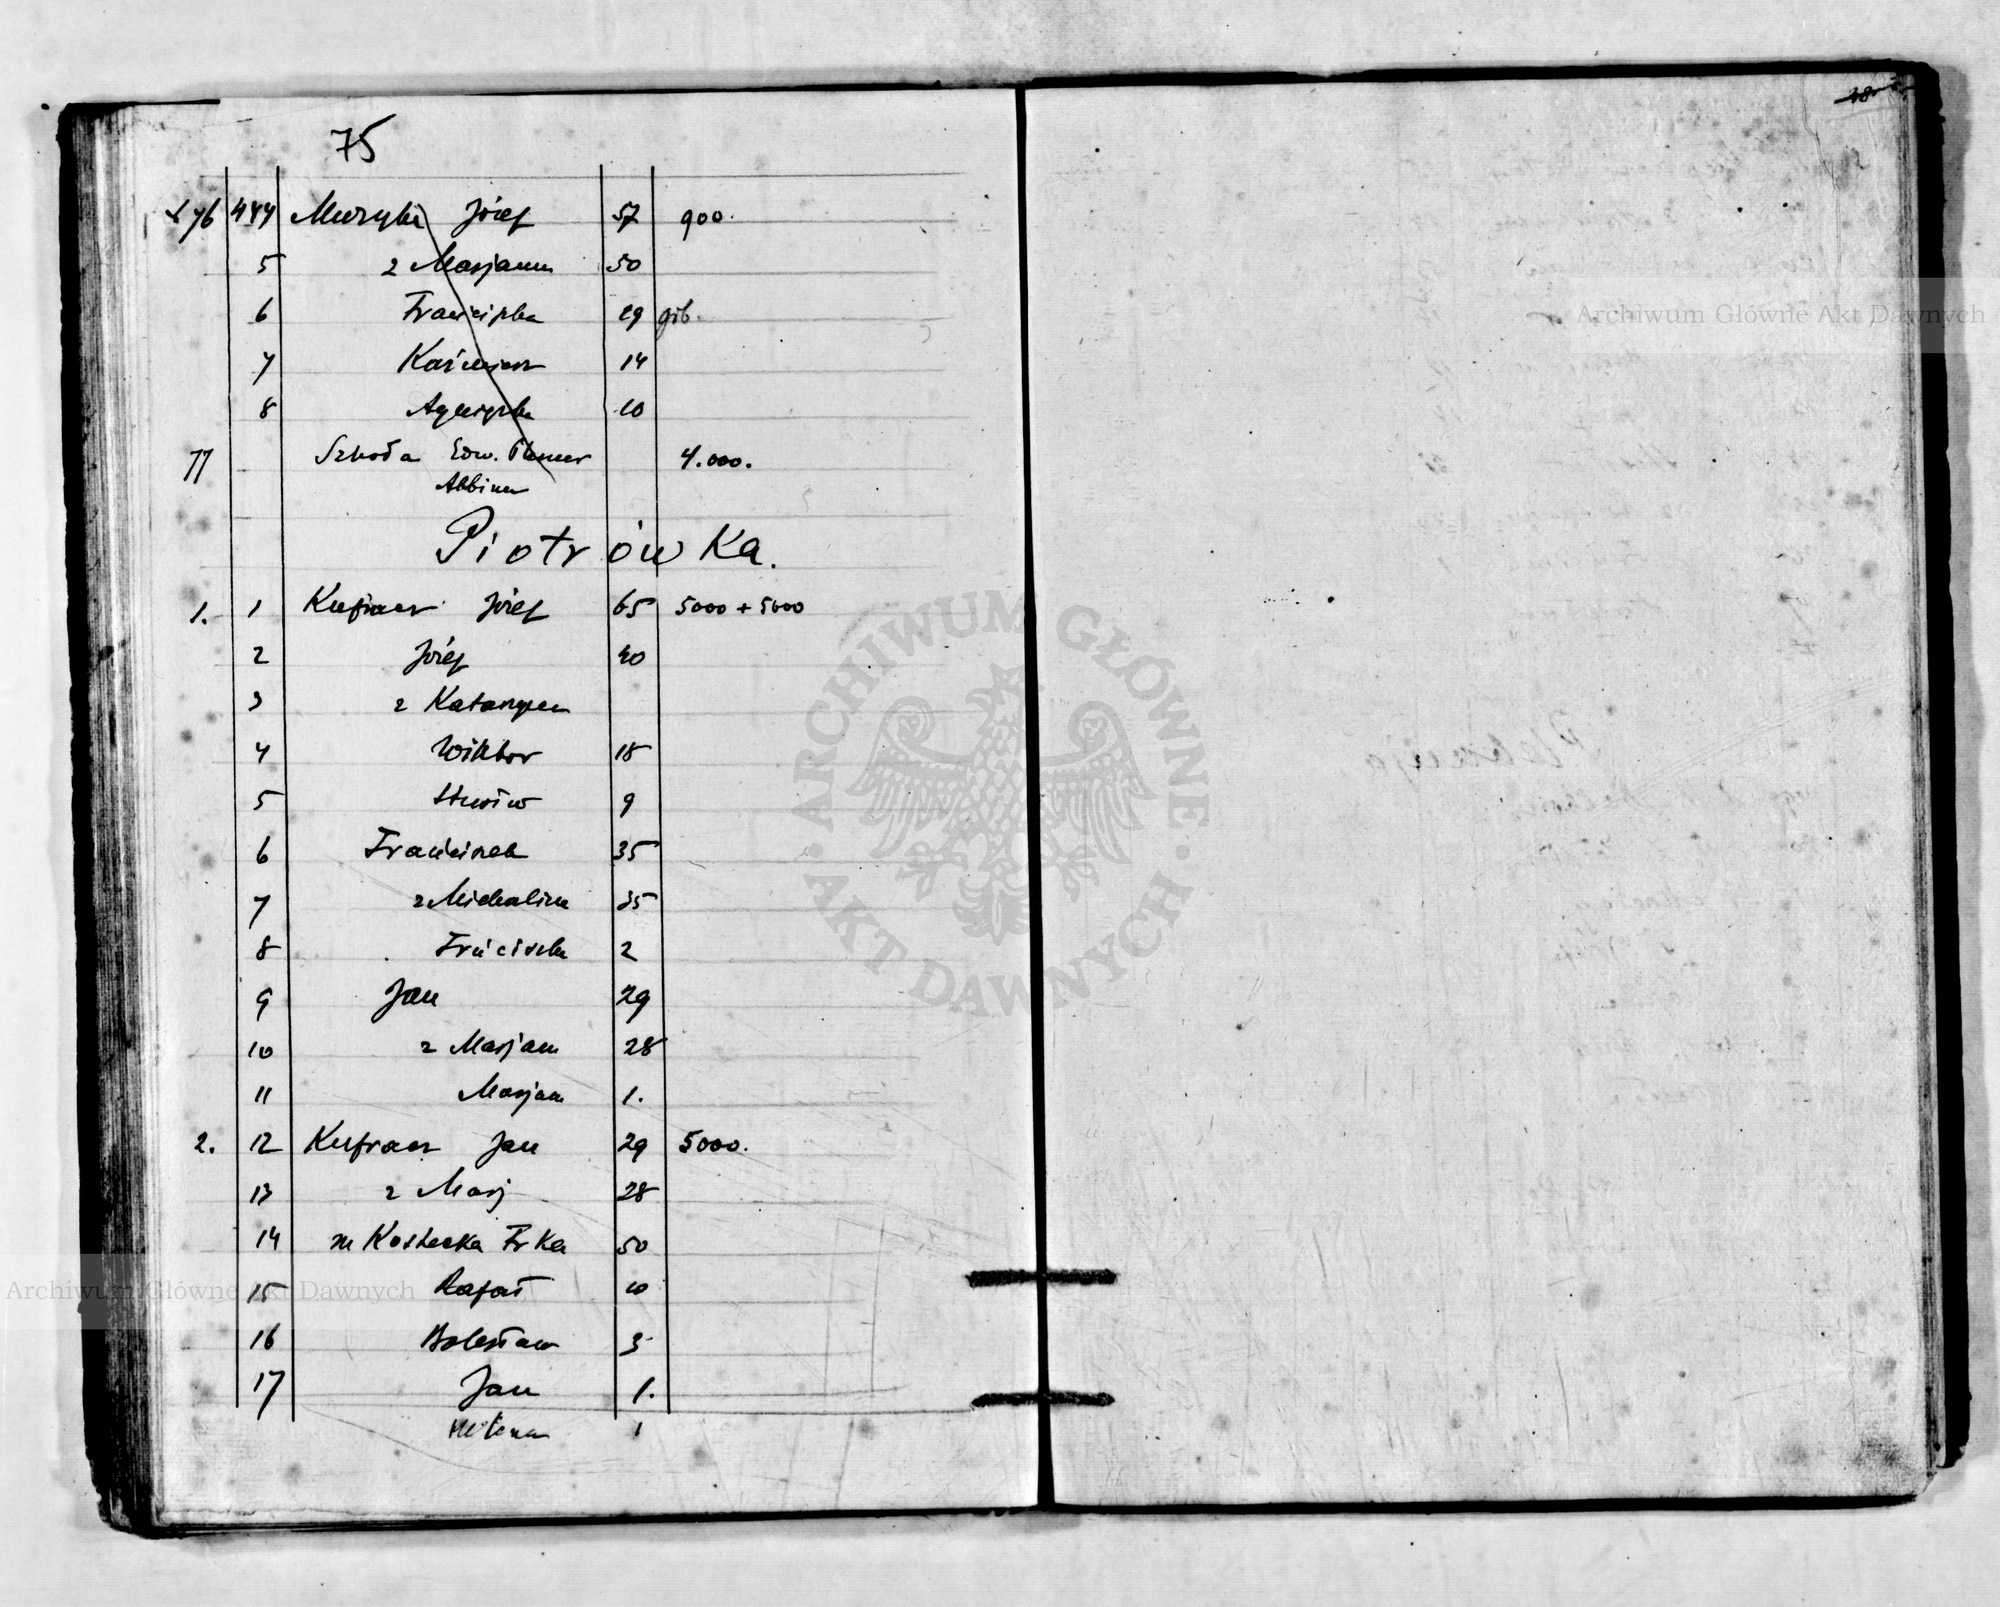 75
x 76 484 Muzyka Józef 57 900.
5 z Marjanna 50
6 Franciszka 29 gib.
7 Kazimierz 14
8 Agnieszka 10
77 - Szkoła Edw.
4.000.
Albina
Piotrówka.
1. 1 Kufraer Józef 65 5000 + 5000
2 Józef 40
3 z Katarzyna
4 Wiktor 18
5 9
6 Franciszek 35
7 z Michalina 35
8 Fr̄ciszka 2
9 Jan 29
10 z Marjan 28
11 Marjan 1.
2. 12 Kufraer Jan 29 5000.
13 z Marj 28
14 m Kostecka Fr Ka 50
15 Rafał 10
16 Bolesław 3
17 Jan 1.
Helena 1
Archiwum Główne Akt Dawnych
ARCHIWUM GŁÓWNE AKT DAWNYCH
Archiwum Główne Akt Dawnych